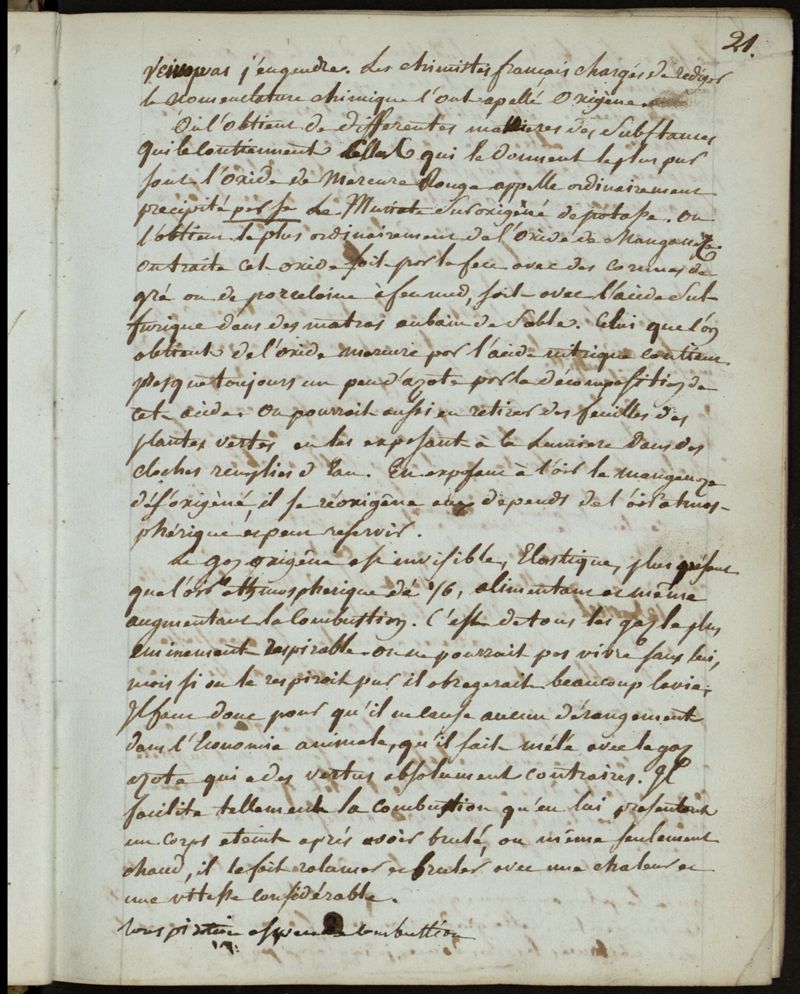 21.
j'engendre. Les chimistes francais chargés de rediger
la nomenclature chimique l'ont apellé Oxigène.
On l'obtient de differentes matieres des Substances
qui le contiennent qui le donnent le plus pur
sont l'Oxide de Mercure Rouge appellé ordinairement
precipité per se Le Muriate Suroxigéné de potasse. On
l'obtient le plus ordinairement de l'Oxide de Manganèze
on traite cet oxide soit par le feu avec des cornues de
gré ou de porcelaine à feu nud, soit avec l'acide Sul-
furique dans des matras au bain de Sable. Celui que l'on
obtient de l'oxide mercure par l'acide nitrique contient
presque toujours un peu d'azote par la décomposition de
cet acide. On pourroit aussi en retirer des feuilles des
plantes vertes en les exposant à la Lumiere dans des
cloches remplies d'Eau. En exposant à l'air le manganeze
désoxigéné, il se réoxigène aux depends de l'air atmos-
phérique et peut reservir.
Le gaz oxigène est invisible, Elastique, plus pésant
que l'air atmospherique de 1/6, alimentant et même
augmentant la Combustion. C'est de tous les gaz le plus
eminement respirable. on ne pourrait pas vivre sans lui,
mais si on le respiroit pur il abregerait beaucoup la vie.
Il faut donc pour qu'il ne cause aucun dérangement
dans l'Economie animale, qu'il soit mélé avec le gaz
azote qui a des vertus absolument contraires. Il
facilite tellement la combustion qu'en lui presentant
un corps eteint après avoir brulé, ou même seulement
chaud, il le fait ralumer et bruler avec une chaleur et
une vitesse considérable.
combustion